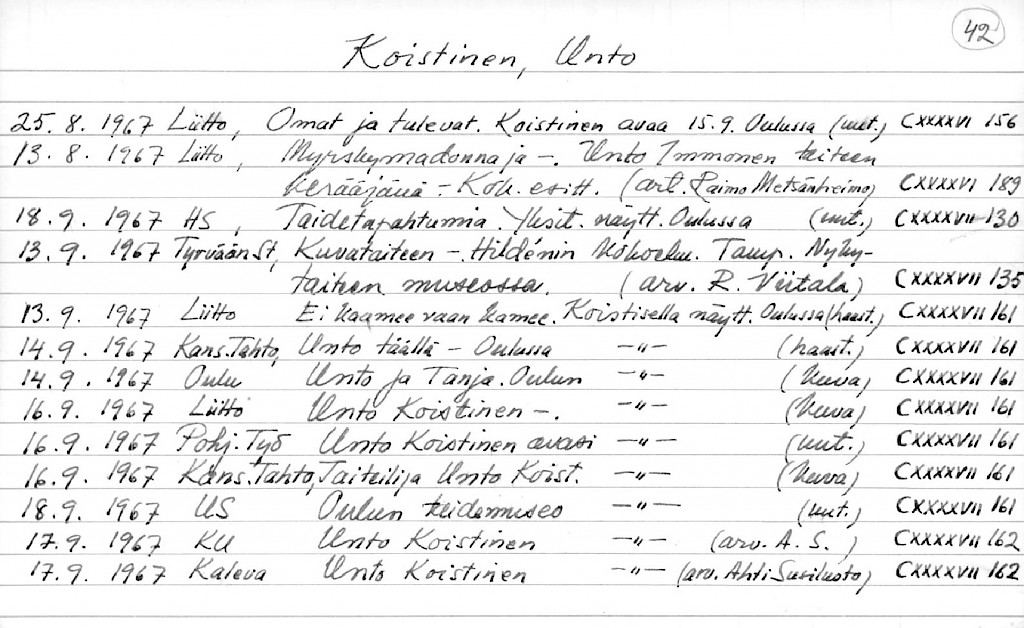 42
Koistinen, Unto
25. 8. 1967 Liitto, Omat ja tulevat. Koistinen avaa 15.9. Oulussa (uut.) CXXXXVI 156
13. 8. 1967 Liitto, Myrskymadonna ja -. Unto Immonen taiteen
kerääjänä - Kok. esitt. (art. Raimo Metsänheimo) CXXXXVI 189
18. 9. 1967 HS, Taidetapahtumia. Yksit. näytt. Oulussa (uut.) CXXXXVII 130
13. 9. 1967 Tyrvään St, Kuvataiteen - Hildénin kokoelm. Tamp. Nyky-
taiteen museossa. (arv. R. Viitala) CXXXXVII 135
13. 9. 1967 Liitto Ei kaamee vaan kamee. Koistisella näytt. Oulussa (haast.) CXXXXVII 161
14. 9. 1967 Kans. Tahto, Unto täällä - Oulussa -"- (haast.) CXXXXVII 161
14. 9. 1967 Oulu Unto ja Tanja. Oulun -"- (kuva) CXXXXVII 161
16. 9. 1967 Liitto Unto Koistinen -. -"- (kuva) CXXXXVII 161
16. 9. 1967 Pohj. Työ Unto Koistinen avasi -"- (uut.) CXXXXVII 161
16. 9. 1967 Kans. Tahto, Taiteilija Unto Koist. -"- (kuva) CXXXXVII 161
18. 9. 1967 US Oulun taidemuseo -"- (uut.) CXXXXVII 161
17. 9. 1967 KU Unto Koistinen -"- (arv. A. S. ) CXXXXVII 162
17. 9. 1967 Kaleva Unto Koistinen -"- (arv. Ahti Susiluoto) CXXXXVII 162